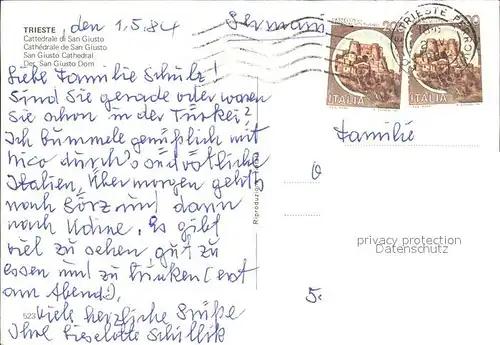 TRIESTE, den 1.5.84
Cattedrale di San Giusto
Cathédrale de San Giusto
San Giusto Cathedral
Der San Giusto Dom
Liebe Familie Schulz!
Sind Sie gerade oder waren
Sie schon in der Türkei?
Ich bummele genüßlich mit
Nico durch's südöstliche
Italien, Übermorgen geht's
nach Görz und dann
nach Udine. Es gibt
viel zu sehen, gut zu
essen und zu trinken (erst
am Abend!),
Viele herzliche Grüße
Ihre Lieselotte
523
Riproduzione
Germania
TRIESTE
ITALIA
ITALIA
Familie
privacy protection
Datenschutz